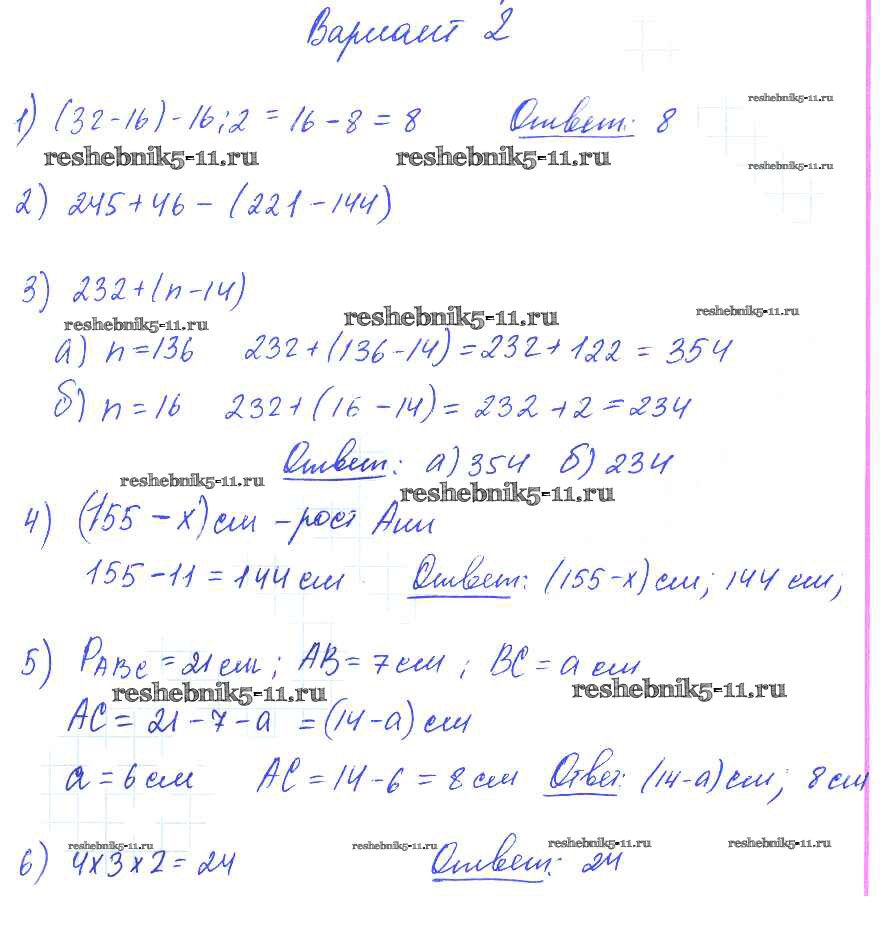 Вариант 2
1) (32-16)-16:2 = 16-8 = 8 Ответ: 8
reshebnik5-11.ru
reshebnik5-11.ru reshebnik5-11.ru
reshebnik5-11.ru
2) 245+46-(221-144)
3) 232+(n-14)
reshebnik5-11.ru reshebnik5-11.ru reshebnik5-11.ru
а) n=136 232+(136-14)=232+122=354
б) n=16 232+(16-14)=232+2=234
Ответ: а) 354 б) 234
reshebnik5-11.ru reshebnik5-11.ru
4) (155-x) см - рост Ани
155-11=144 см Ответ: (155-x) см; 144 см;
5) PABC = 21 см; AB = 7 см; BC = a см
reshebnik5-11.ru reshebnik5-11.ru
AC = 21-7-a = (14-a) см
a = 6 см AC = 14-6 = 8 см Ответ: (14-a) см; 8 см
reshebnik5-11.ru reshebnik5-11.ru reshebnik5-11.ru reshebnik5-11.ru
6) 4x3x2=24 Ответ: 24